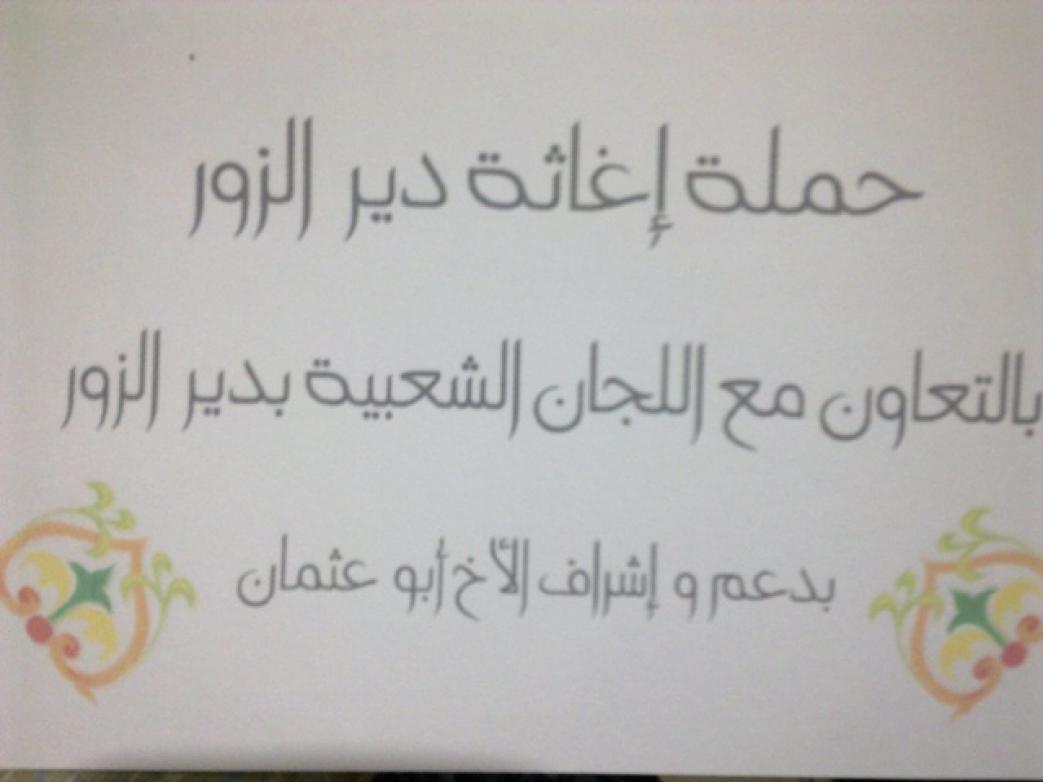 حملة إغاثة دير الزور
بالتعاون مع اللجان الشعبية بدير الزور
بدعم و إشراف الأخ أبو عثمان